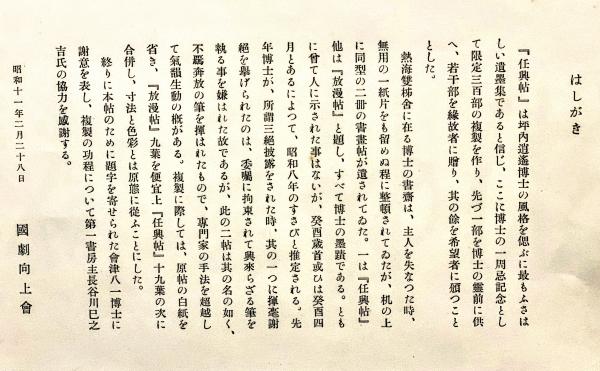 はしがき
『任興帖』は坪內逍遙博士の風格を偲ぶに最もふさは
しい遺墨集であると信じ、ここに博士の一周忌記念とし
て限定三百部の複製を作り、先づ一部を博士の靈前に供
へ、若干部を緣故者に贈り、其の餘を希望者に頒つこと
とした。
熱海雙柿舍に在る博士の書齋は、主人を失なつた時、
無用の一紙片をも留めぬ程に整頓されてゐたが、机の上
に同型の二冊の書畫帖が遺されてゐた。一は『任興帖』
他は『放漫帖』と題し、すべて博士の墨蹟である。とも
に曾て人に示された事はないが、癸酉歲首或ひは癸酉四
月とあるによつて、昭和八年のすさびと推定される。先
年博士が、所謂三絕披露をされた時、其の一つに揮毫謝
絕を擧げられたのは、委囑に拘束されて興來らざる筆を
執る事を嫌はれた故であるが、此の二帖は其の名の如く、
不羈奔放の筆を揮はれたもので、專門家の手法を超越し
て氣韻生動の槪がある。複製に際しては、原帖の白紙を
省き、『放漫帖』九葉を便宜上『任興帖』十九葉の次に
合併し、寸法と色彩とは原態に從ふことにした。
終りに本帖のために題字を寄せられた會津八一博士に
謝意を表し、複製の功程について第一書房主長谷川巳之
吉氏の協力を感謝する。
昭和十一年二月二十八日
國劇向上會